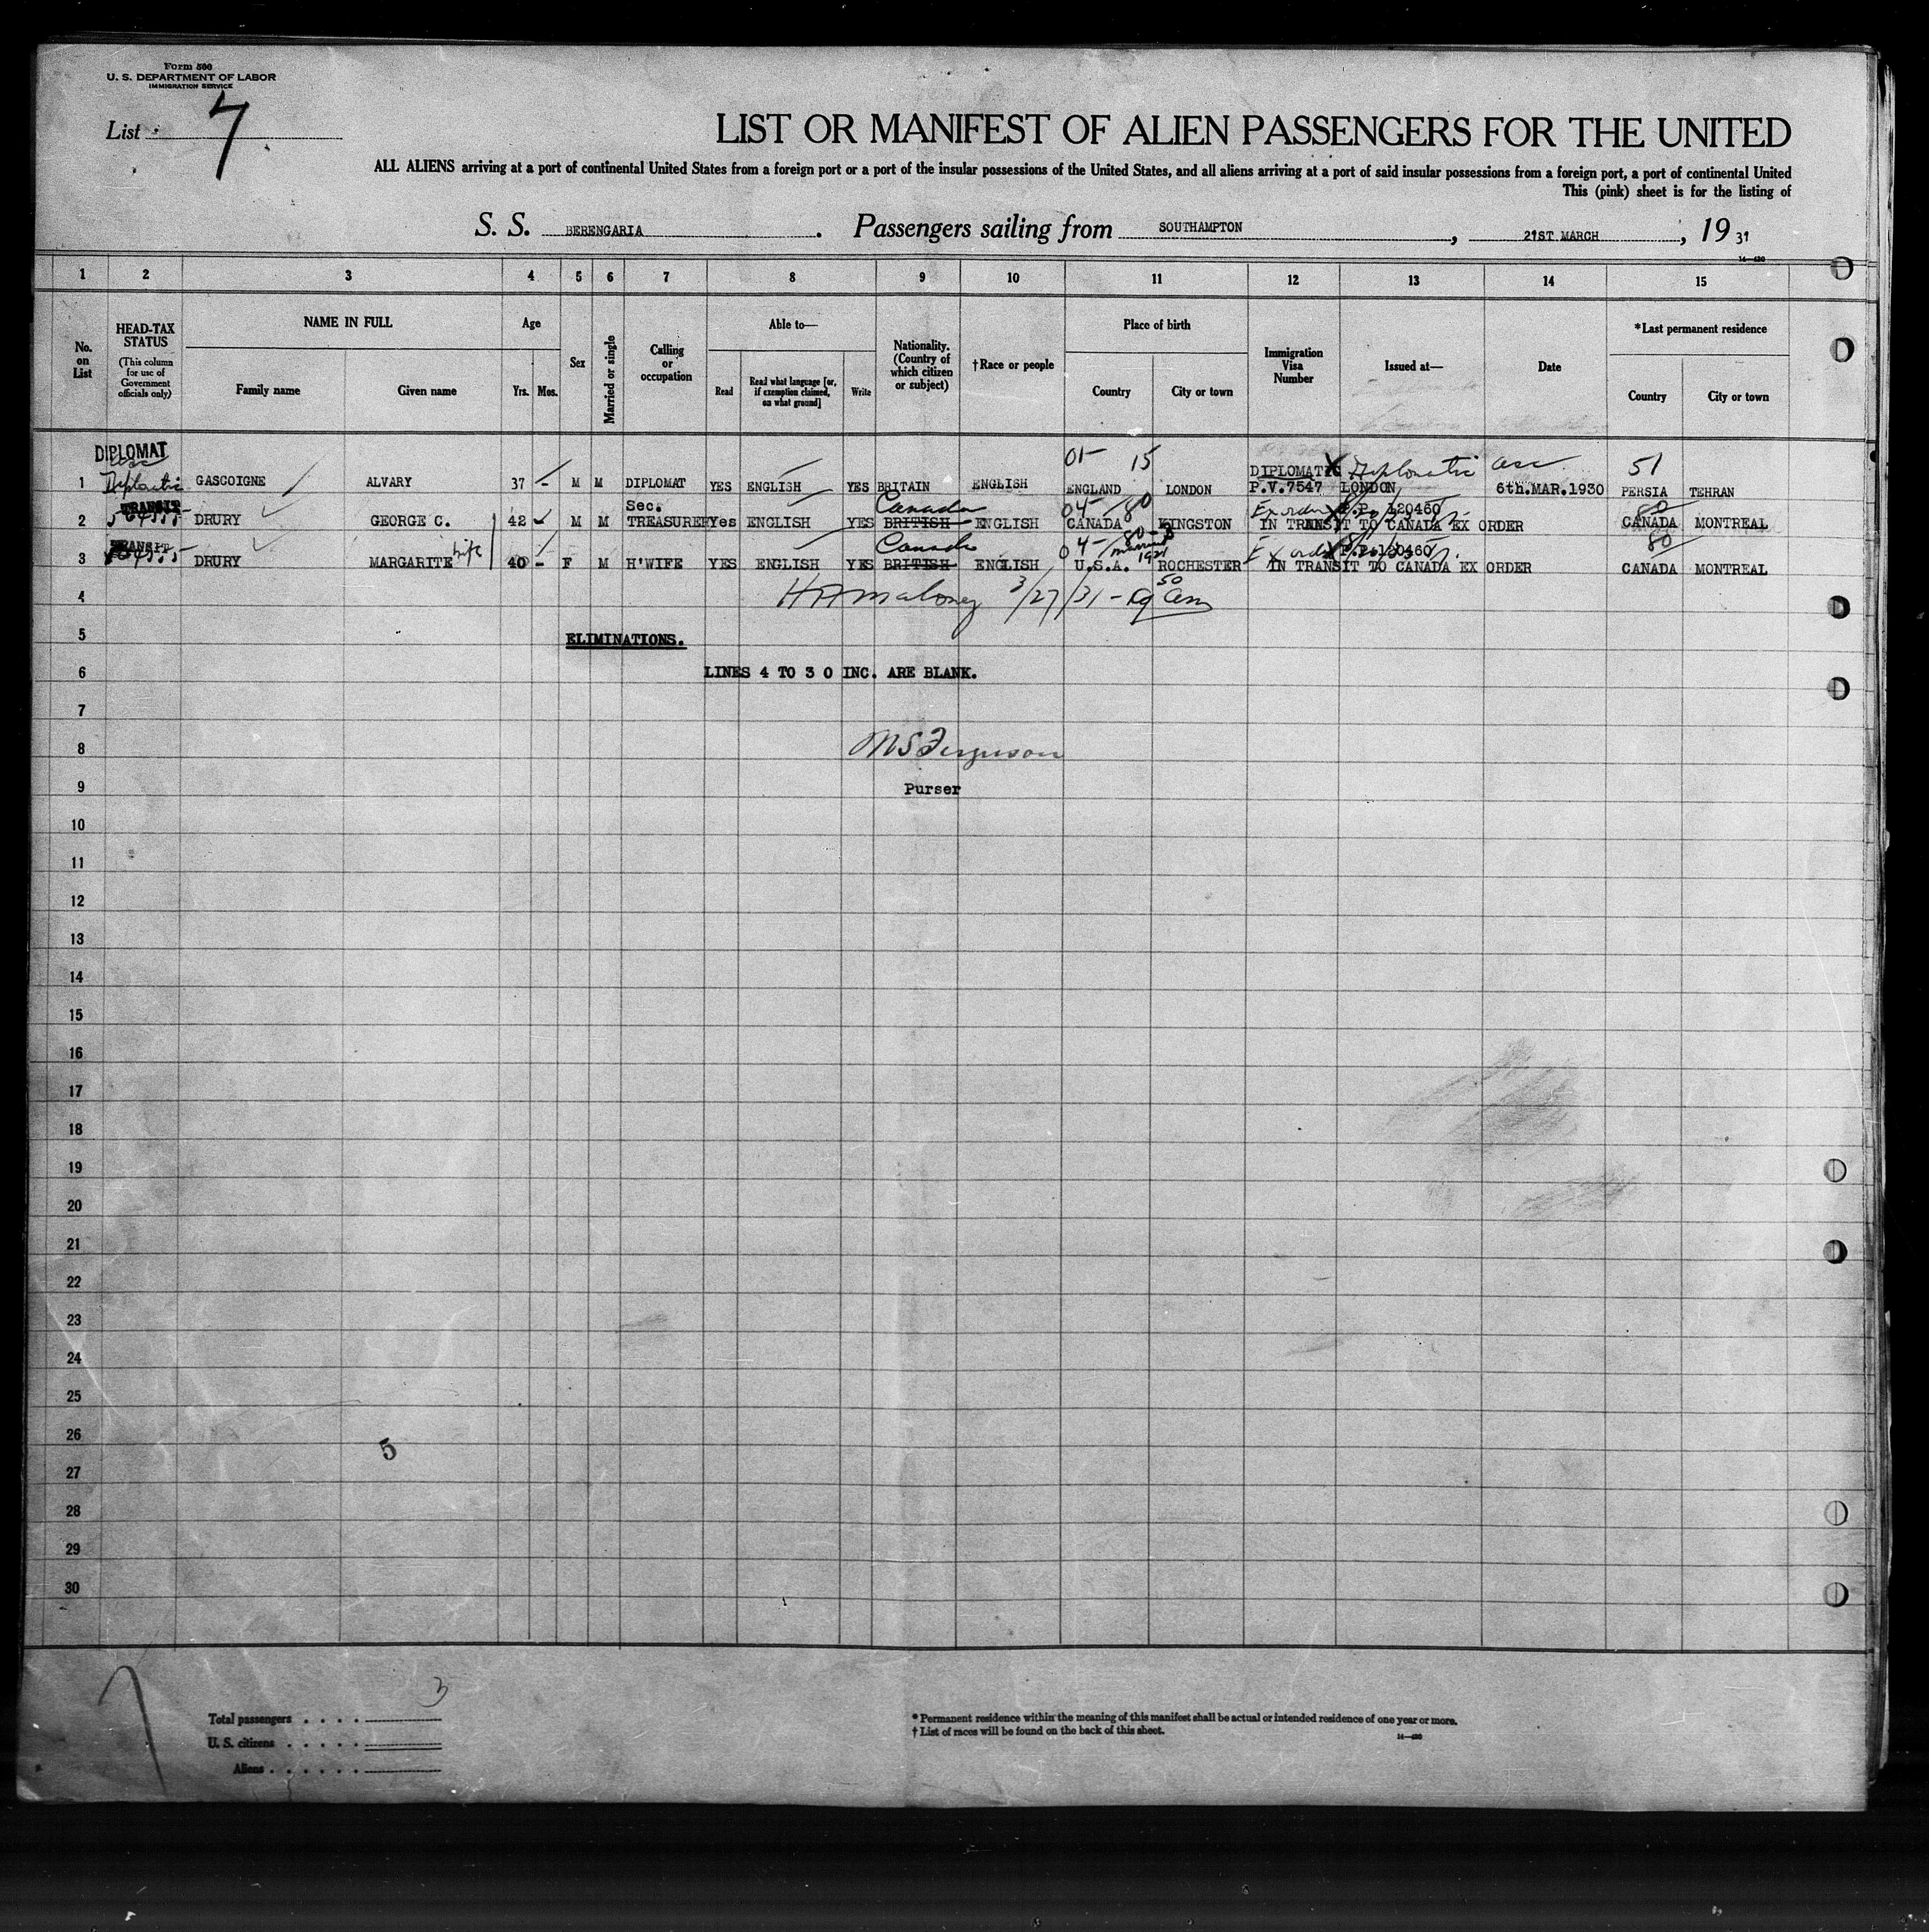 Form 500
U. S. DEPARTMENT OF LABOR
IMMIGRATION SERVICE
List 7
LIST OR MANIFEST OF ALIEN PASSENGERS FOR THE UNITED
ALL ALIENS arriving at a port of continental United States from a foreign port or a port of the insular possessions of the United States, and all aliens arriving at a port of said insular possessions from a foreign port, a port of continental United
This (pink) sheet is for the listing of
S. S. BERENGARIA. Passengers sailing from SOUTHAMPTON, 21ST MARCH, 1931
14—430
1 2 3 4 5 6 7 8 9 10 11 12 13 14 15
No. on List
HEAD-TAX STATUS
(This column for use of Government officials only)
NAME IN FULL
Family name Given name
Age
Yrs. Mos.
Sex
Married or single
Calling or occupation
Able to—
Read
Read what language [or, if exemption claimed, on what ground]
Write
Nationality. (Country of which citizen or subject)
†Race or people
Place of birth
Country City or town
Immigration Visa Number
Issued at—
Date
*Last permanent residence
Country City or town
DIPLOMAT
01- 15 Diplomatic 51
1 Diplomatic GASCOIGNE ALVARY 37 - M M DIPLOMAT YES ENGLISH YES BRITAIN ENGLISH ENGLAND LONDON DIPLOMATIC P.V.7547 LONDON 6th.MAR.1930 PERSIA TEHRAN
TRANSIT Canada 04- 80 Ex order P.P. 120460 80
2 DRURY GEORGE C. 42 M M Sec. TREASURER Yes ENGLISH YES BRITISH ENGLISH CANADA KINGSTON IN TRANSIT TO CANADA EX ORDER CANADA MONTREAL
TRANSIT Canada 04- 80 married 1921 Ex order P.P. 120460 80
3 DRURY MARGARITE wife 40 - F M H'WIFE YES ENGLISH YES BRITISH ENGLISH U.S.A. ROCHESTER IN TRANSIT TO CANADA EX ORDER CANADA MONTREAL
4 H A Maloney 3/27/31 -
5 ELIMINATIONS.
6 LINES 4 TO 3 0 INC. ARE BLANK.
7
8 M S Ferguson
9 Purser
10
11
12
13
14
15
16
17
18
19
20
21
22
23
24
25
26
5
27
28
29
30
Total passengers . . . . 3
U. S. citizens . . . . .
Aliens . . . . . .
* Permanent residence within the meaning of this manifest shall be actual or intended residence of one year or more.
† List of races will be found on the back of this sheet.
14—430